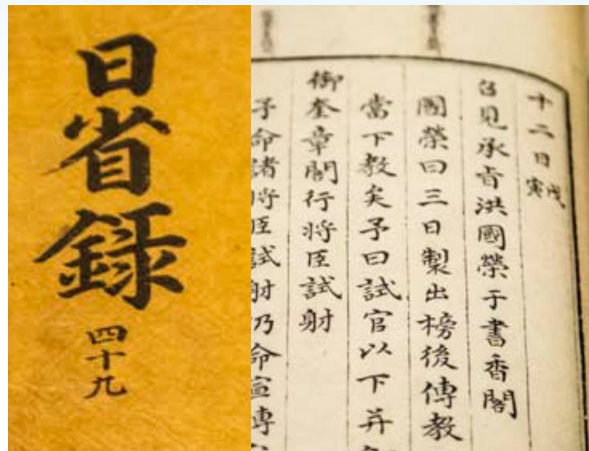 日省錄
四十九
十二日戊寅
召見承旨洪國榮于書香閣
國榮曰三日製出榜後傳教
當下教矣予曰試官以下并
御奎章閣行將臣試射
予命諸將臣試射乃命宣傳